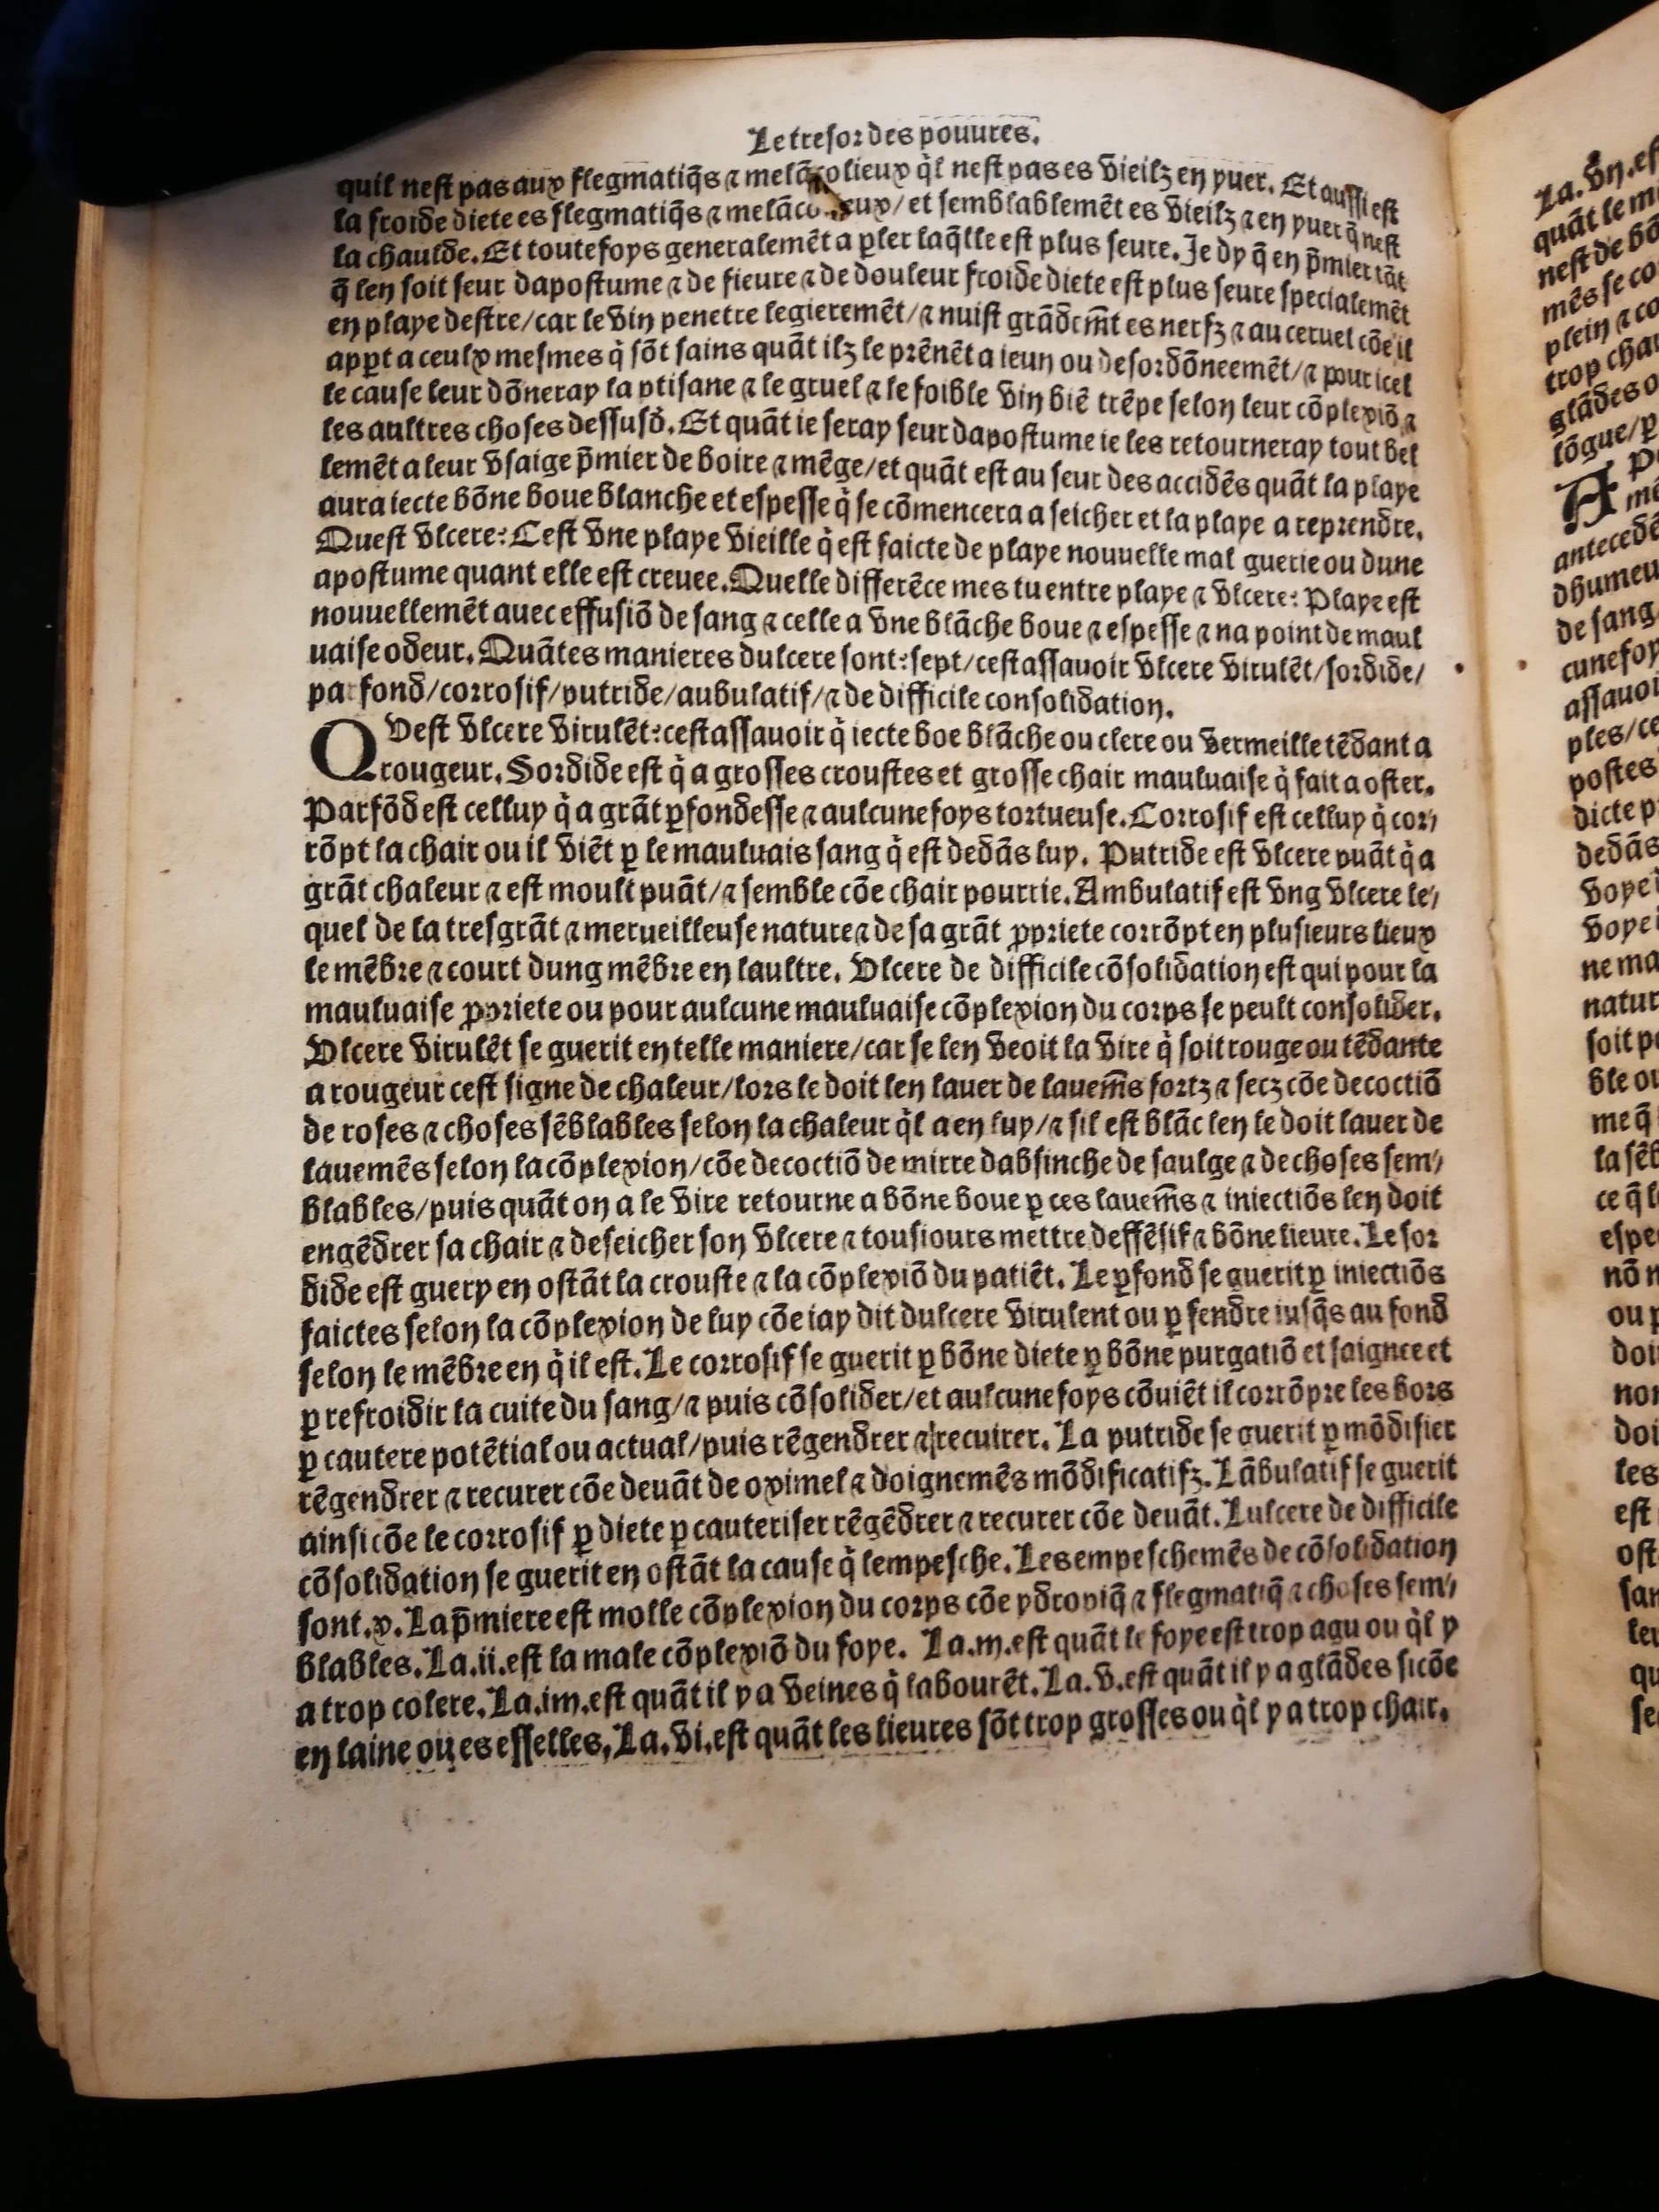 Le tresor des pouures.
quil nest pas aux flegmatiq̃s ⁊ melãcolieux q̃l nest pas es vieilz en yuer. Et aussi est
la froide diete es flegmatiq̃s ⁊ melãco eux/ et semblablemẽt es vieilz ⁊ en yuer q̃ nest
la chaulde. Et toutefoys generalemẽt a ꝑler laq̃lle est plus seure. Je dy q̃ en p̃mier tãt
q̃ len soit seur dapostume ⁊ de fieure ⁊ de douleur froide diete est plus seure specialemẽt
en playe destre/car le vin penetre legieremẽt/⁊ nuist grãdem̃t es nerfz ⁊ au ceruel cõe il
apꝑt a ceulx mesmes q̃ sõt sains quãt ilz le prẽnẽt a ieun ou desordõneemẽt/⁊ pour icel
le cause leur dõneray la ptisane ⁊ le gruel ⁊ le foible vin biẽ trẽpe selon leur cõplexiõ ⁊
les aultres choses dessusd̃. Et quãt ie seray seur dapostume ie les retourneray tout bel
lemẽt a leur vsaige p̃mier de boire ⁊ mẽge/et quãt est au seur des accidẽs quãt la playe
aura iecte bõne boue blanche et espesse q̃ se cõmencera a seicher et la playe a reprendre.
Quest vlcere: Cest vne playe vieille q̃ est faicte de playe nouuelle mal guerie ou dune
apostume quant elle est creuee. Quelle differẽce mes tu entre playe ⁊ vlcere: Playe est
nouuellemẽt auec effusiõ de sang ⁊ celle a vne blãche boue ⁊ espesse ⁊ na point de maul
uaise odeur. Quãtes manieres dulcere sont: sept/cestassauoir vlcere virulẽt/sordide/
parfond/corrosif/putride/aubulatif/⁊ de difficile consolidation.
QVest vlcere virulẽt: cestassauoir q̃ iecte boe blãche ou clere ou vermeille tẽdant a
rougeur. Sordide est q̃ a grosses croustes et grosse chair mauluaise q̃ fait a oster.
Parfõd est celluy q̃ a grãt ꝑfondesse ⁊ aulcunefoys tortueuse. Corrosif est celluy q̃ cor/
rõpt la chair ou il viẽt ꝑ le mauluais sang q̃ est dedãs luy. Putride est vlcere puãt q̃ a
grãt chaleur ⁊ est moult puãt/⁊ semble cõe chair pourrie. Ambulatif est vng vlcere le/
quel de la tresgrãt ⁊ merueilleuse nature ⁊ de sa grãt ꝓpriete corrõpt en plusieurs lieux
le mẽbre ⁊ court dung mẽbre en laultre. Vlcere de difficile cõsolidation est qui pour la
mauluaise ꝓpriete ou pour aulcune mauluaise cõplexion du corps se peult consolider.
Vlcere virulẽt se guerit en telle maniere/car se len veoit la vire q̃ soit rouge ou tẽdante
a rougeur cest signe de chaleur/lors le doit len lauer de lauem̃s fortz ⁊ secz cõe decoctiõ
de roses ⁊ choses sẽblables selon la chaleur q̃l a en luy/⁊ sil est blãc len le doit lauer de
lauemẽs selon la cõplexion/cõe decoctiõ de mirre dabsinche de saulge ⁊ de choses sem/
blables/puis quãt on a le vire retourne a bõne boue ꝑ ces lauem̃s ⁊ iniectiõs len doit
engẽdrer sa chair ⁊ deseicher son vlcere ⁊ tousiours mettre deffẽsif ⁊ bõne lieure. Le sor
dide est guery en ostãt la crouste ⁊ la cõplexiõ du patiẽt. Le ꝑfond se guerit ꝑ iniectiõs
faictes selon la cõplexion de luy cõe iay dit dulcere virulent ou ꝑ fendre iusq̃s au fond
selon le mẽbre en q̃ il est. Le corrosif se guerit ꝑ bõne diete ꝑ bõne purgatiõ et saignee et
ꝑ refroidir la cuite du sang/⁊ puis cõsolider/et aulcunefoys cõuiẽt il corrõpre les bors
ꝑ cautere potẽtial ou actual/puis rẽgendrer ⁊ recuirer. La putride se guerit ꝑ mõdifier
rẽgendrer ⁊ recurer cõe deuãt de oximel ⁊ doignemẽs mõdificatifz. Lãbulatif se guerit
ainsi cõe le corrosif ꝑ diete ꝑ cauteriser rẽgẽdrer ⁊ recurer cõe deuãt. Lulcere de difficile
cõsolidation se guerit en ostãt la cause q̃ lempesche. Les empeschemẽs de cõsolidation
sont.x. La p̃miere est molle cõplexion du corps cõe ydropiq̃ ⁊ flegmatiq̃ ⁊ choses sem/
blables. La.ii.est la male cõplexiõ du foye. La.iii.est quãt le foye est trop agu ou q̃l y
a trop colere. La.iiii.est quãt il y a veines q̃ labourẽt. La.v.est quãt il y a glãdes sicõe
en laine ou es esselles, La.vi.est quãt les lieures sõt trop grosses ou q̃l y a trop chair.
La. vii.es
quãt le m
nest de bõ
mẽs se co
plein ⁊ co
trop cha
glãdes o
lõgue/ꝑ
A
antecedẽ
dhumeu
de sang
cunefoy
assauoi
ples/ce
postes
dicte p
dedãs
voye i
voye i
ne ma
natur
soit p
ble ou
me q̃
la sẽb
ce q̃ l
espe
nõ n
ou p
doi
non
doi
les
est
ost
san
leu
qu
se